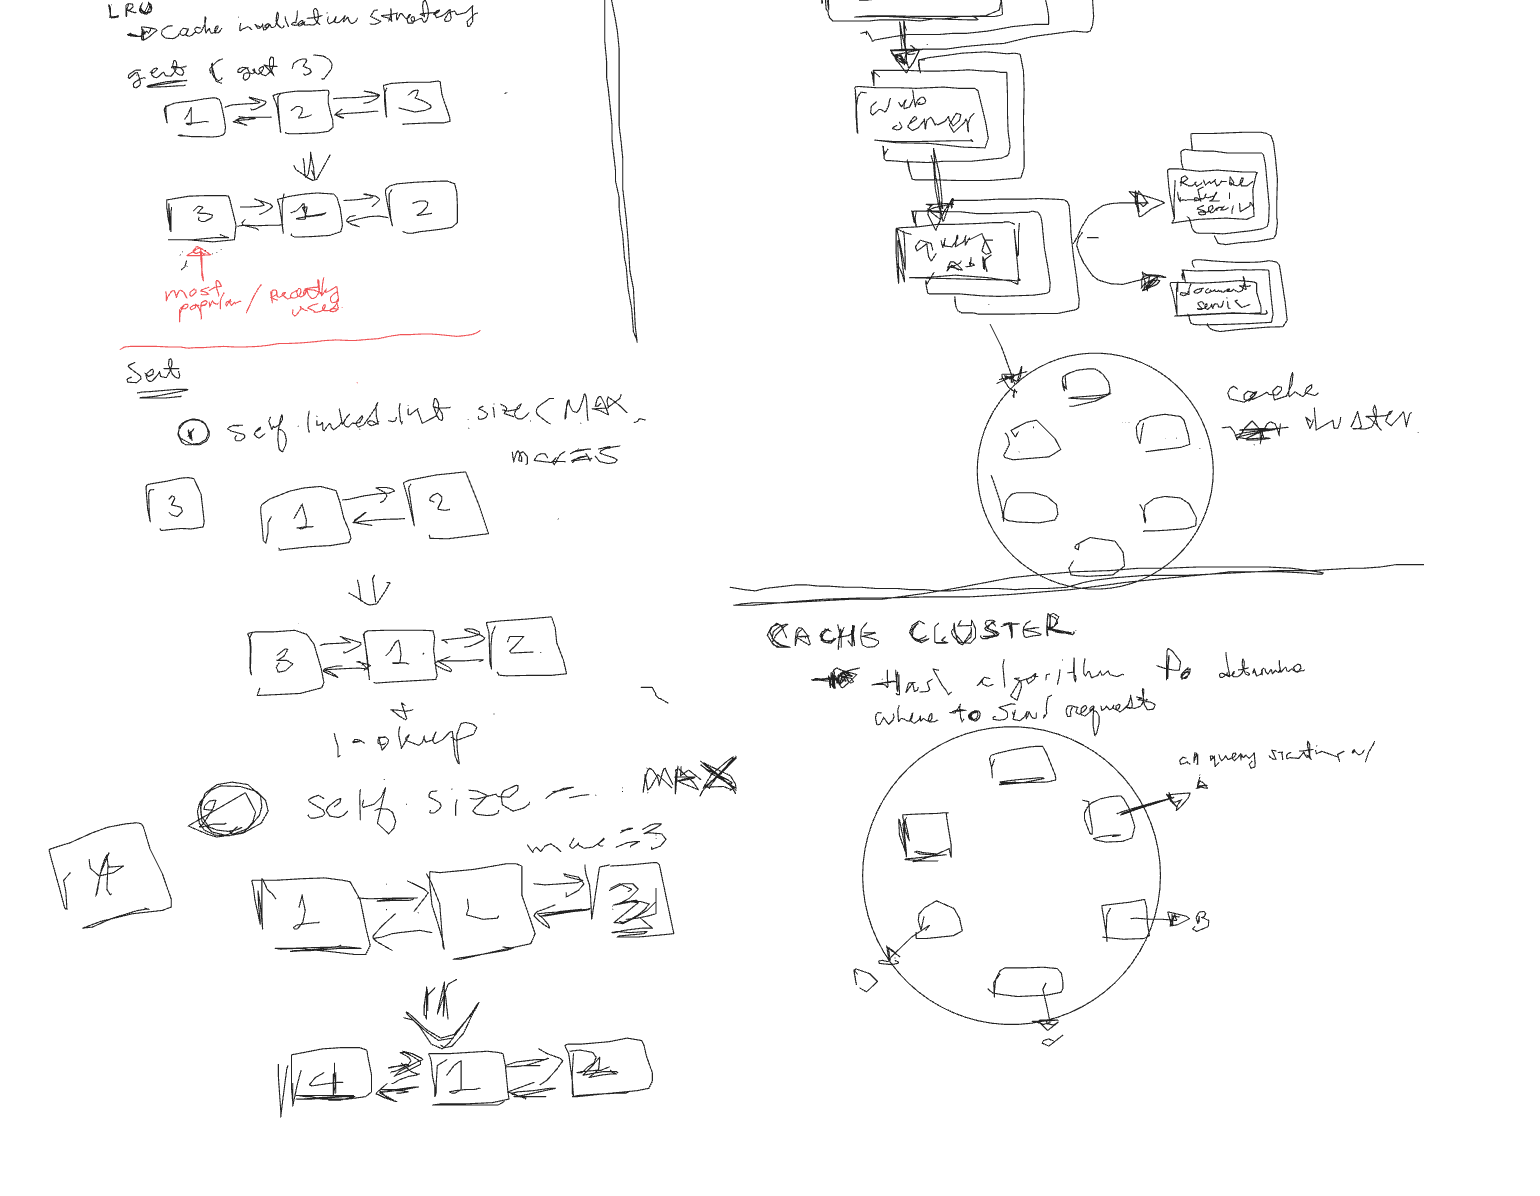 LRU
Cache invalidation strategy
get ( get 3 )
1 2 3
3 1 2
most popular / recently used
Set
1 self.linked_list.size < MAX
max = 5
3 1 2
3 1 2
+
lookup
2 self.size = MAX
max = 3
4 1 2 3
4 1 2
web server
query API
Reverse index service
document service
cache cluster
CACHE CLUSTER
Hash algorithm to determine
where to send request
all query starting w/
A
B
D